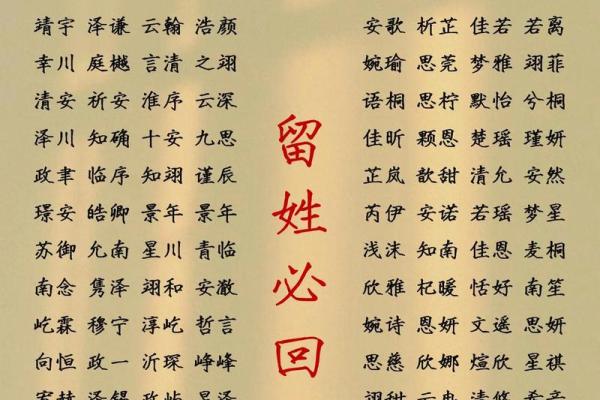 靖宇 泽谦 云翰 浩颜
幸川 庭樾 言清 之翊
清安 祈安 淮序 云深
泽川 知确 十安 九思
政聿 临序 知翊 谨辰
璟安 皓卿 景年 景年
苏御 允南 星川 青临
南念 隽泽 翊和 安澈
屹霖 穆宁 淳屹 哲言
向恒 政一 沂琛 峥峰
留姓必回
安歌 析芷 佳若 若离
婉瑜 思莞 梦雅 翊菲
语桐 思柠 默怡 兮桐
佳昕 颗恩 楚瑶 瑾妍
芷岚 歆甜 清允 安然
芮伊 安诺 若瑶 梦星
浅沫 知南 佳恩 麦桐
欣雅 杞暖 恬好 南笙
婉诗 恩妍 文遥 思妍
思慈 欣娜 煊欣 星祺